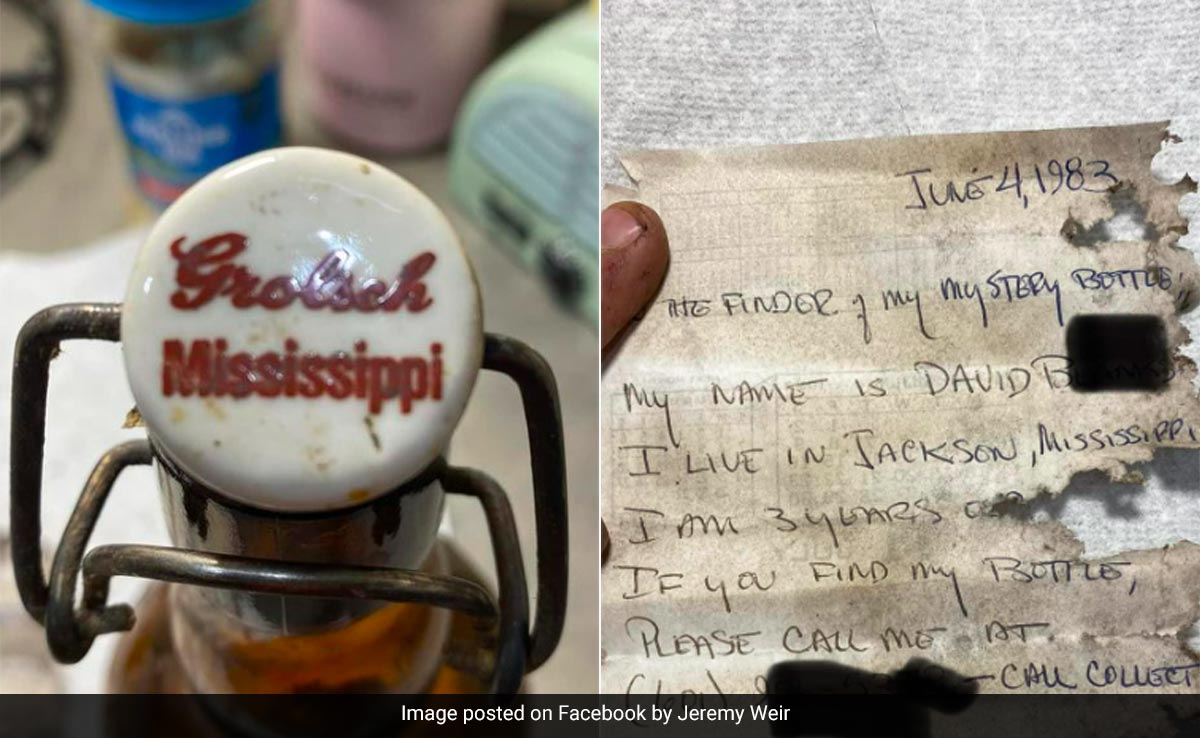 Grolsch
Mississippi
JUNE 4, 1983
THE FINDER of my MYSTERY BOTTLE,
MY NAME IS DAVID
I LIVE IN JACKSON, MISSISSIPPI
I AM 3 YEARS
IF YOU FIND MY BOTTLE,
PLEASE CALL ME AT
(601) — CALL COLLECT
Image posted on Facebook by Jeremy Weir